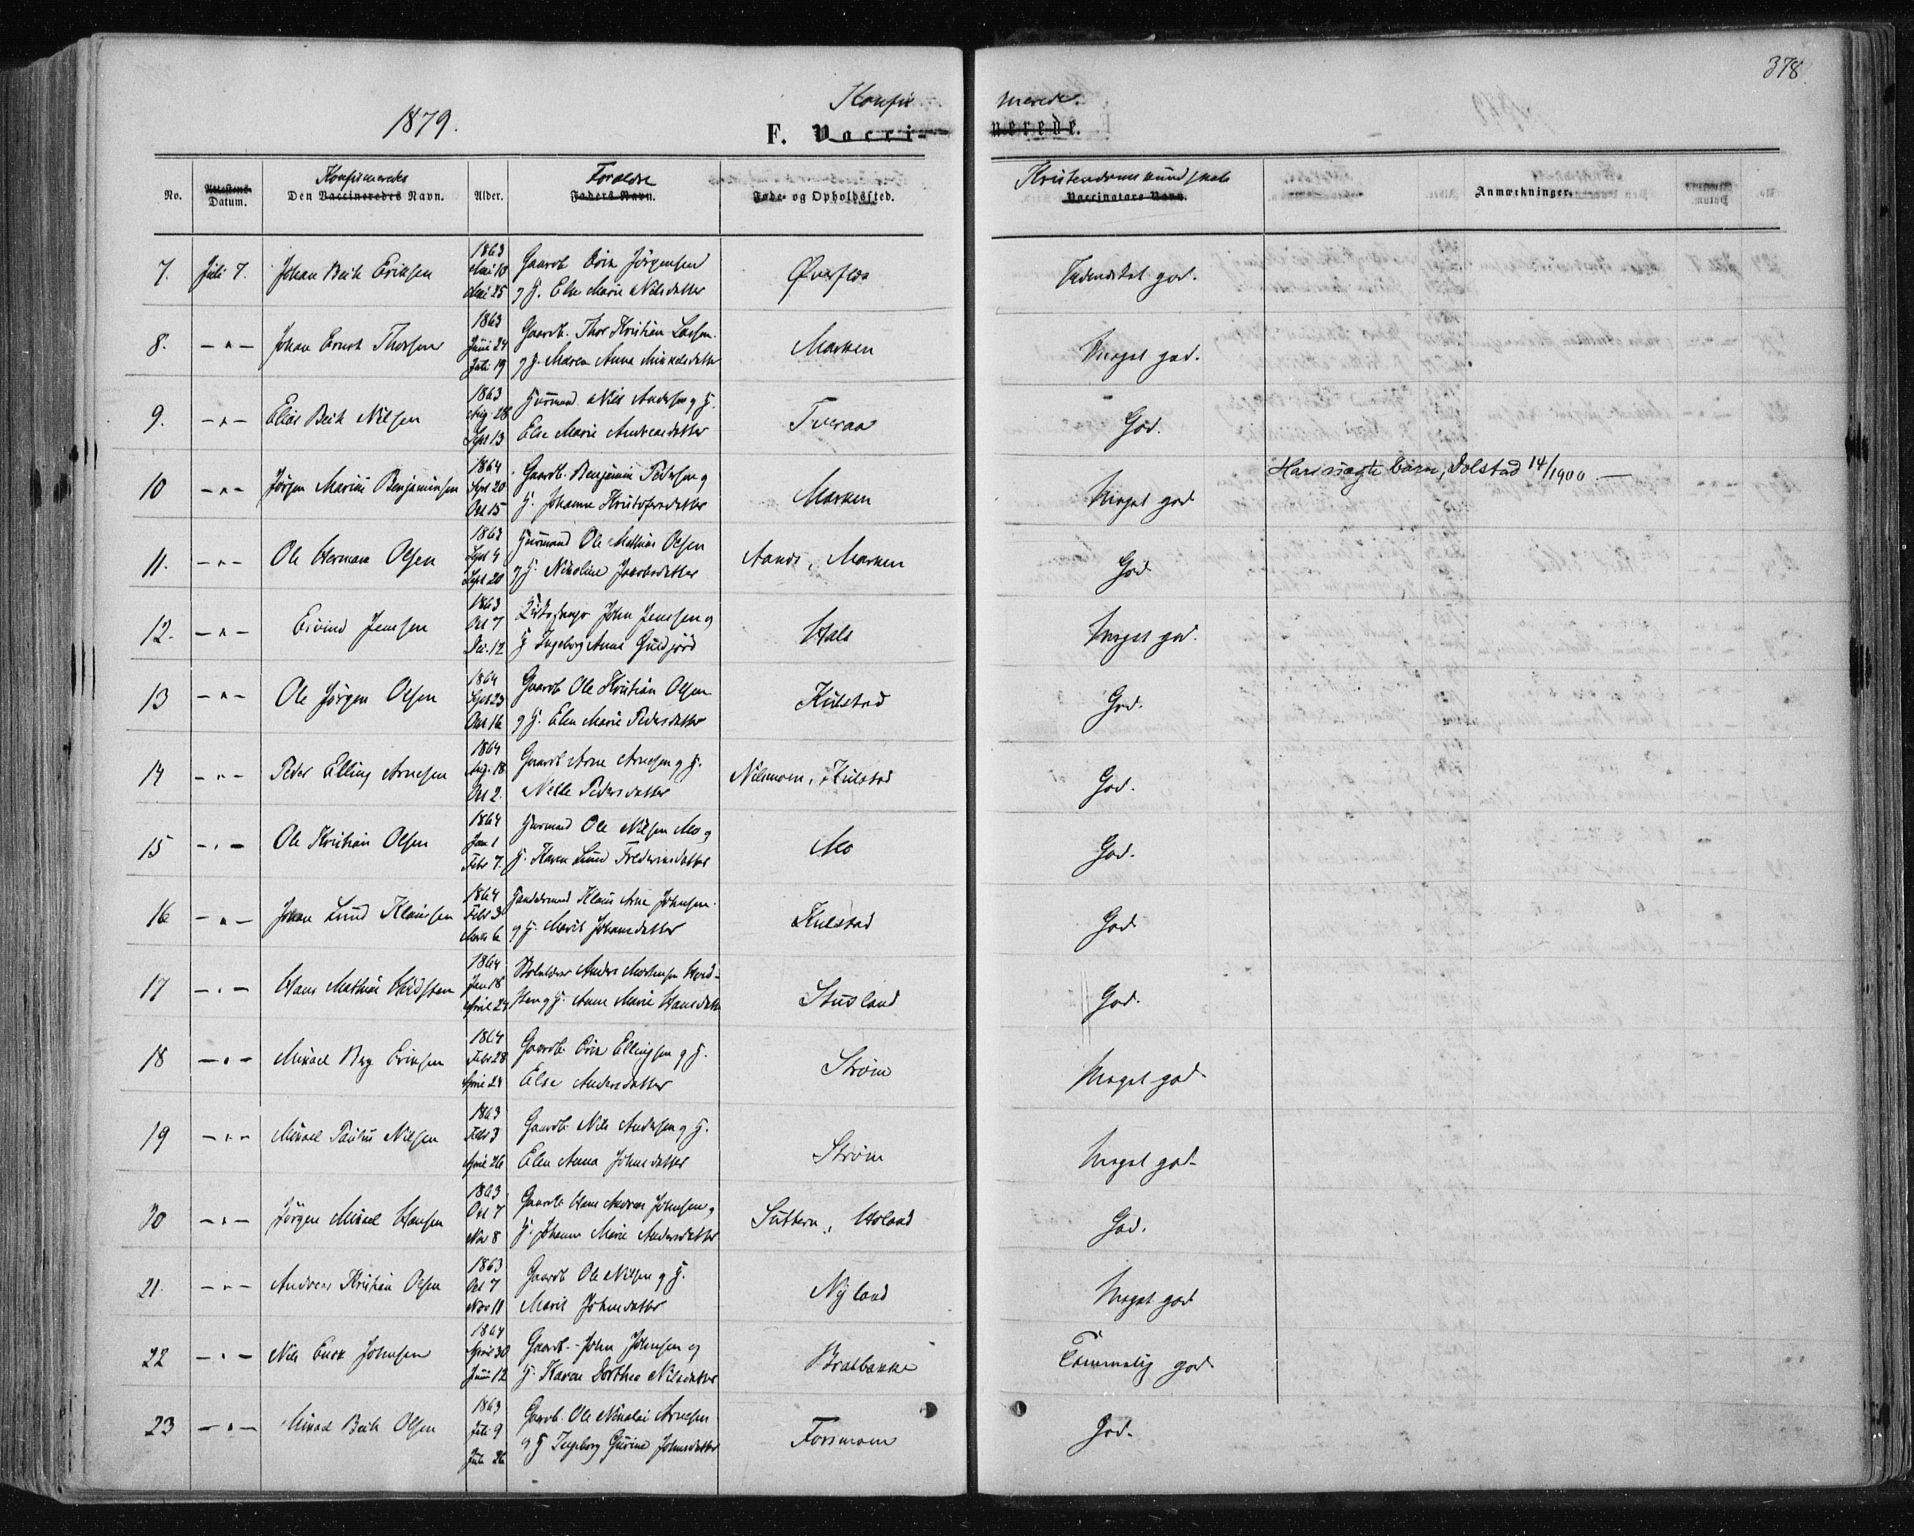 378
1879.
Konfir merede.
F. Vacci- nerede.
Konfirmeredes
Forældre
Kristendomskundskab
No.
Attestens Datum.
Den Vaccineredes Navn.
Alder.
Faders Navn.
Føde- og Opholdssted.
Vaccinators Navn.
Anmærkninger.
7. Juli 7. Johan Beck Eriksen 1863 Mai 10 Mai 25 Gaardb. Erik Jörgensen
og H. Else Marie Nilsdatter
8. -"- Johan Ernst Thorsen 1863 Juni 24 Juli 19 Gaardb. Thor Kristian Larsen
og H. Maren Anna Mikkelsdatter Marken Meget god.
9. -"- Elias Beck Nilsen 1863 Aug. 28 Sept 13 Husmand Nils Andersen og H.
Else Marie Andreasdatter Tveraa God.
10 -"- Jörgen Marius Benjaminsen 1864 Sept 20 Oct 15 Gaardb. Benjamin Pedersen og
H. Johanna Kristofersdatter Marken Meget god Dolstad 14/1900 —
11. -"- Ole Herman Olsen 1863 Sept 4 Sept 20 Husmand Ole Mathias Olsen
og H. Nikoline Jakobsdatter Marken God
12. -"- Eivind Jenssen 1863 Oct 7 Dec. 12 John Jenssen og
H. Ingeborg Anna Hals Meget god.
13 -"- Ole Jörgen Olsen 1864 Sept 23 Oct 16 Gaardb Ole Kristian Olsen
og H. Elen Marie Pedersdatter Kulstad God.
14 -"- Peder Elling Arnesen 1864 Aug. 18 Oct 2. Gaardb Arne Arnesen og H.
Pedersdatter Nilsmoen, Kulstad God.
15 -"- Ole Kristian Olsen 1864 Jan 1 Febr 7. Husmand Ole Nilsen Mo og
H. Karen Lund Frederiksdatter Mo God.
16 -"- Johan Lund Klausen 1864 Febr 3 Marts 6 Klaus Arne Johnsen
og H. Marit Johansdatter Kulstad God
17 -"- Hans Mathias Hvidsten 1864 Jan 18 April 24 Anders Mortensen Hvid-
sten og H. Anne Marie Hansdatter Stusland God.
18 -"- Mikael Berg Eriksen 1864 Febr 28 April 24 Gaardb Erik Ellingsen og H.
Else Andersdatter Strøm Meget god.
19 -"- Mikael Paulus Nilsen 1863 Febr 3 April 26 Gaardb. Nils Andersen og H.
Elen Anna Johnsdatter Strøm Meget god.
20 -"- Jörgen Mikael Hansen 1863 Oct 7 Nov 8 Gaardb Hans Andreas Johnsen og
H. Johanna Marie Andersdatter God.
21. -"- Andreas Kristian Olsen 1863 Oct 7 Nov 11 Gaardb Ole Nilsen og H.
Marit Johnsdatter Nyland Meget god
22 -"- Nils Erik Johnsen 1864 April 30 Juni 12 Gaardb. John Johnsen og
H. Karen Dorthea Nilsdatter Bratbakke Temmelig god
23 -"- Mikael Beck Olsen 1863 Juli 9 Juli 26 Gaardb. Ole Nikolai Arnesen
og H Ingeborg Gurine Johnsdatter Forsmoen God.